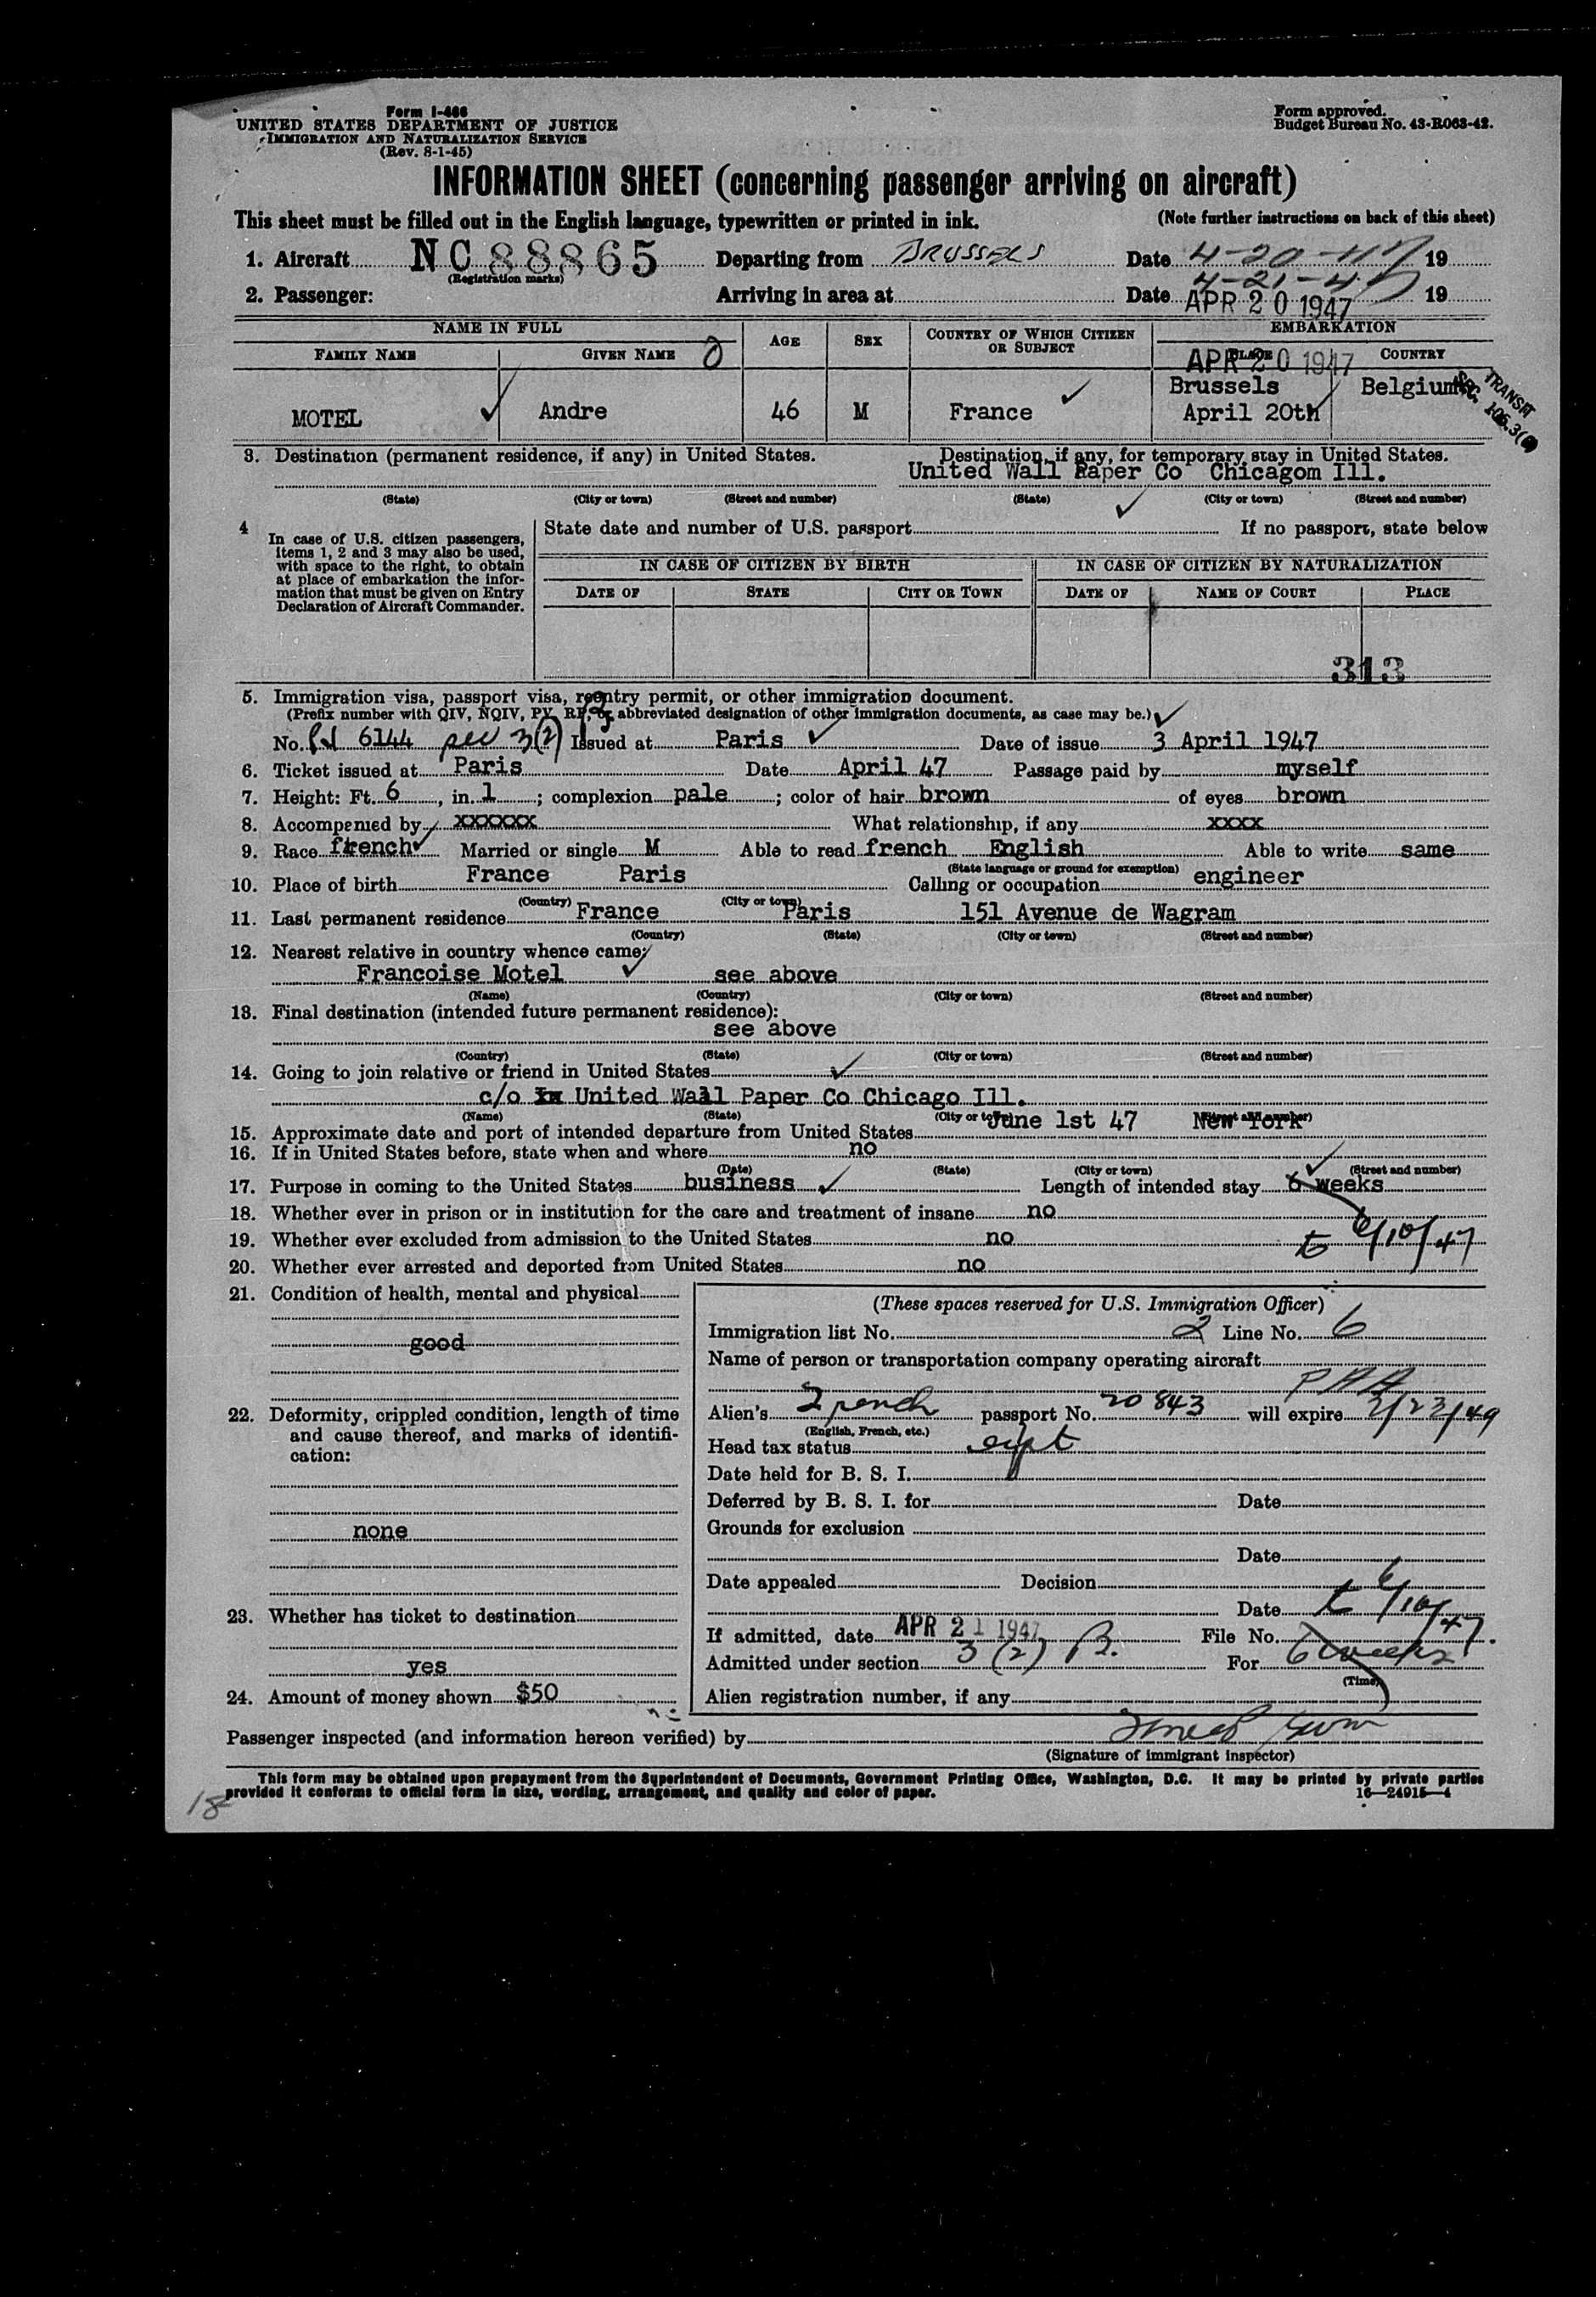 Form I-466
UNITED STATES DEPARTMENT OF JUSTICE
IMMIGRATION AND NATURALIZATION SERVICE
(Rev. 8-1-45)
Form approved.
Budget Bureau No. 43-R063-42.
INFORMATION SHEET (concerning passenger arriving on aircraft)
This sheet must be filled out in the English language, typewritten or printed in ink. (Note further instructions on back of this sheet)
1. Aircraft NC 88865 Departing from BRUSSELS Date 4-20-47 19
(Registration marks)
4-21-47
2. Passenger: Arriving in area at Date APR 20 1947 19
NAME IN FULL AGE SEX COUNTRY OF WHICH CITIZEN OR SUBJECT EMBARKATION
FAMILY NAME GIVEN NAME PLACE COUNTRY
APR 20 1947
TRANSIT
SEC.
Brussels Belgium
MOTEL Andre 46 M France April 20th
3. Destination (permanent residence, if any) in United States. Destination, if any, for temporary stay in United States.
United Wall Paper Co Chicagom Ill.
(State) (City or town) (Street and number) (State) (City or town) (Street and number)
4 In case of U.S. citizen passengers, items 1, 2 and 3 may also be used, with space to the right, to obtain at place of embarkation the information that must be given on Entry Declaration of Aircraft Commander.
State date and number of U.S. passport If no passport, state below
IN CASE OF CITIZEN BY BIRTH IN CASE OF CITIZEN BY NATURALIZATION
DATE OF STATE CITY OR TOWN DATE OF NAME OF COURT PLACE
313
5. Immigration visa, passport visa, reentry permit, or other immigration document.
(Prefix number with QIV, NQIV, PV, RP, or abbreviated designation of other immigration documents, as case may be.)
No. 6144 sec 3(2) Issued at Paris Date of issue 3 April 1947
6. Ticket issued at Paris Date April 47 Passage paid by myself
7. Height: Ft. 6, in. 1; complexion pale; color of hair brown of eyes brown
8. Accompanied by xxxxxx What relationship, if any xxxx
9. Race french Married or single M Able to read french English Able to write same
(State language or ground for exemption)
10. Place of birth France Paris Calling or occupation engineer
(Country) (City or town)
11. Last permanent residence France Paris 151 Avenue de Wagram
(Country) (State) (City or town) (Street and number)
12. Nearest relative in country whence came:
Francoise Motel see above
(Name) (Country) (City or town) (Street and number)
13. Final destination (intended future permanent residence):
see above
(Country) (State) (City or town) (Street and number)
14. Going to join relative or friend in United States
c/o United Wall Paper Co Chicago Ill.
(Name) (State) (City or town) (Street and number)
15. Approximate date and port of intended departure from United States June 1st 47 New York
16. If in United States before, state when and where no
(Date) (State) (City or town) (Street and number)
17. Purpose in coming to the United States business Length of intended stay 6 weeks
18. Whether ever in prison or in institution for the care and treatment of insane no
19. Whether ever excluded from admission to the United States no t 6/10/47
20. Whether ever arrested and deported from United States no
21. Condition of health, mental and physical
good
22. Deformity, crippled condition, length of time and cause thereof, and marks of identification:
none
23. Whether has ticket to destination
yes
24. Amount of money shown $50
(These spaces reserved for U.S. Immigration Officer)
Immigration list No. 2 Line No. 6
Name of person or transportation company operating aircraft
PAA
Alien's French passport No. 20843 will expire 2/23/49
(English, French, etc.)
Head tax status expt
Date held for B. S. I.
Deferred by B. S. I. for Date
Grounds for exclusion
Date
Date appealed Decision
Date t 6/10/47.
If admitted, date APR 21 1947 File No.
Admitted under section 3 (2) B. For 6 weeks
(Time)
Alien registration number, if any
Passenger inspected (and information hereon verified) by
(Signature of immigrant inspector)
This form may be obtained upon prepayment from the Superintendent of Documents, Government Printing Office, Washington, D.C. It may be printed by private parties
provided it conforms to official form in size, wording, arrangement, and quality and color of paper. 16—24915—4
18